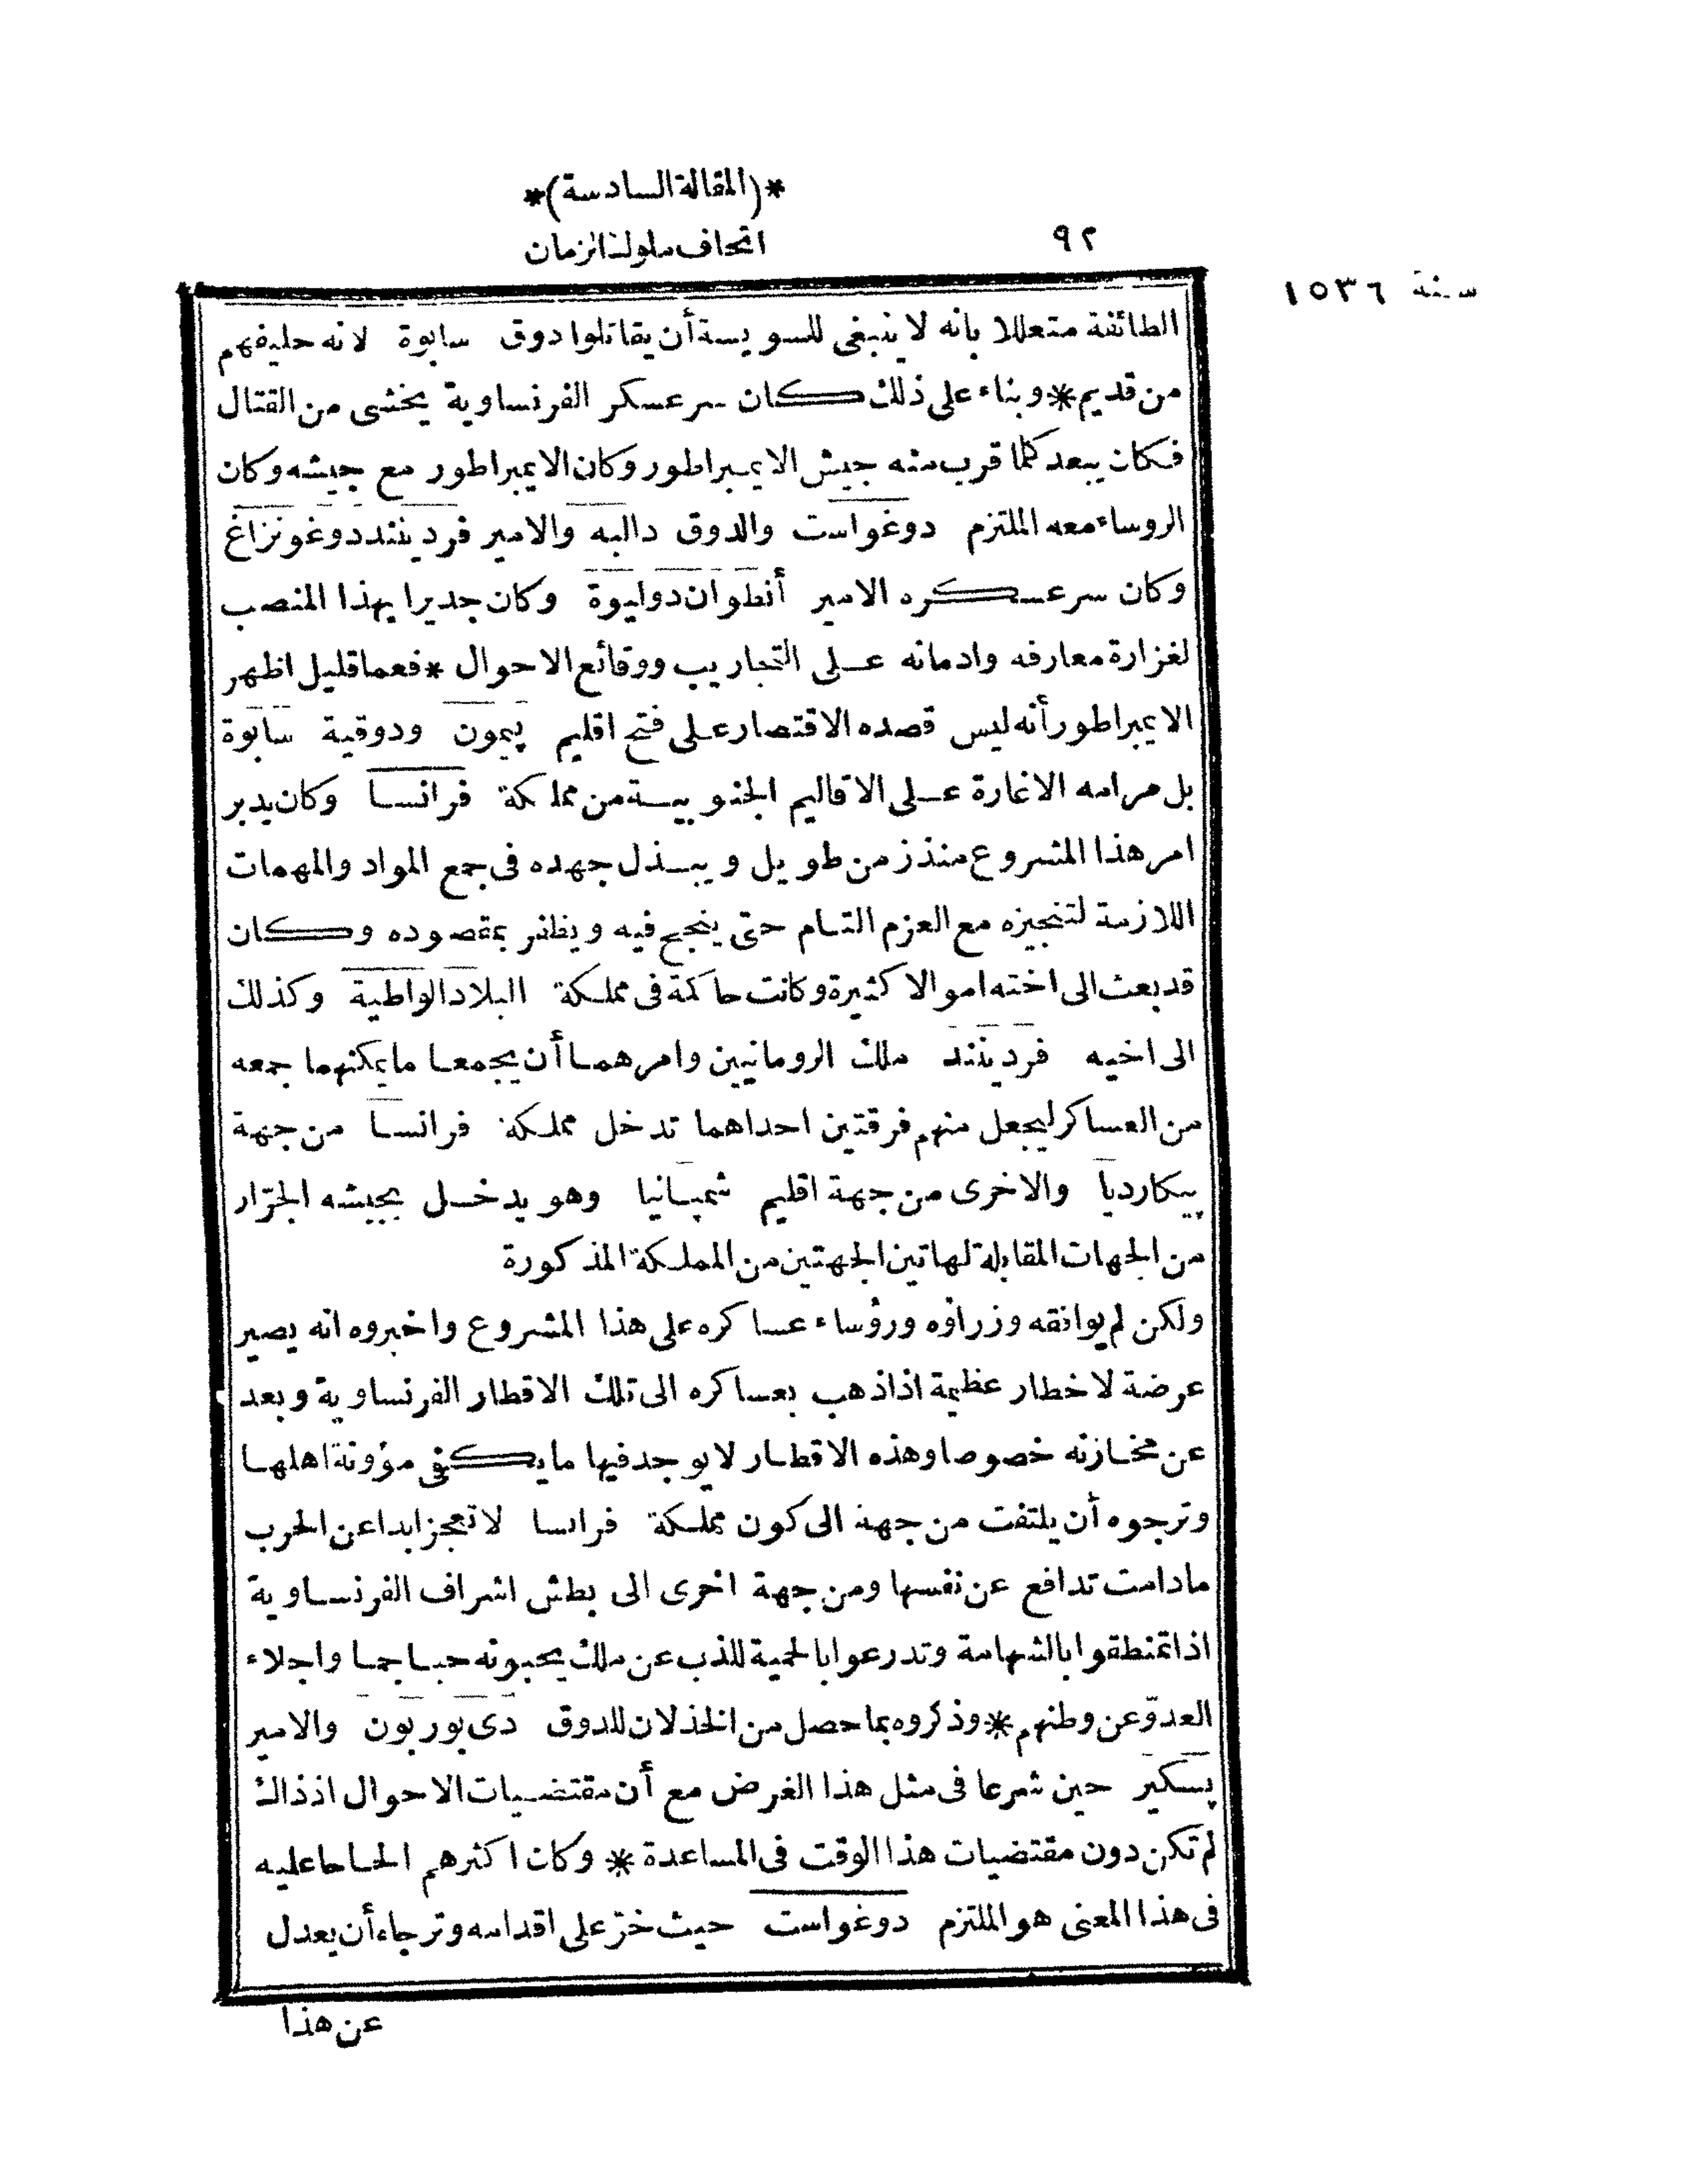 *(المقالة السادسة)*
٩٢
اتحاف ملوك الزمان
سنة ١٥٣٦
الطائفة متعللا بانه لا ينبغى للسويسة أن يقاتلوا دوق سابوة لانه حليفهم
من قديم * وبناء على ذلك كان سرعسكر الفرنساوية يخشى من القتال
فكان يبعد كلما قرب منه جيش الايمبراطور وكان الايمبراطور مع جيشه وكان
الروساء معه الملتزم دوغواست والدوق دالبه والامير فردينند دوغونزاغ
وكان سرعسكره الامير أنطوان دوليوة وكان جديرا بهذا المنصب
لغزارة معارفه وادمانه على التجاريب ووقائع الاحوال * فعما قليل اظهر
الايمبراطور أنه ليس قصده الاقتصار على فتح اقليم پيمون ودوقية سابوة
بل مرامه الاغارة على الاقاليم الجنوبية من مملكة فرانسا وكان يدبر
امر هذا المشروع منذ زمن طويل ويبذل جهده فى جمع المواد والمهمات
اللازمة لتنجيزه مع العزم التام حتى ينجح فيه ويظفر بمقصوده وكان
قد بعث الى اخته اموالا كثيرة وكانت حاكمة فى مملكة البلاد الواطية وكذلك
الى اخيه فردينند ملك الرومانيين وامرهما أن يجمعا ما يمكنهما جمعه
من العساكر ليجعل منهم فرقتين احداهما تدخل مملكة فرانسا من جهة
پيكارديا والاخرى من جهة اقليم شمپانيا وهو يدخل بجيشه الجرّار
من الجهات المقابلة لهاتين الجهتين من المملكة المذكورة
ولكن لم يوافقه وزراؤه ورؤساء عساكره على هذا المشروع واخبروه انه يصير
عرضة لاخطار عظيمة اذا ذهب بعساكره الى تلك الاقطار الفرنساوية وبعد
عن مخازنه خصوصا وهذه الاقطار لا يوجد فيها ما يكفى مؤونة اهلها
وترجوه أن يلتفت من جهة الى كون مملكة فرانسا لا تعجز ابدا عن الحرب
مادامت تدافع عن نفسها ومن جهة اخرى الى بطش اشراف الفرنساوية
اذا تمنطقوا بالشهامة وتدرعوا بالحمية للذب عن ملك يحبونه حبا جما واجلاء
العدوّ عن وطنهم * وذكروه بما حصل من الخذلان للدوق دى بوربون والامير
پسكير حين شرعا فى مثل هذا الغرض مع أن مقتضيات الاحوال اذ ذاك
لم تكن دون مقتضيات هذا الوقت فى المساعدة * وكان اكثرهم الحاحا عليه
فى هذا المعنى هو الملتزم دوغواست حيث خرّ على اقدامه وترجاه أن يعدل
عن هذا